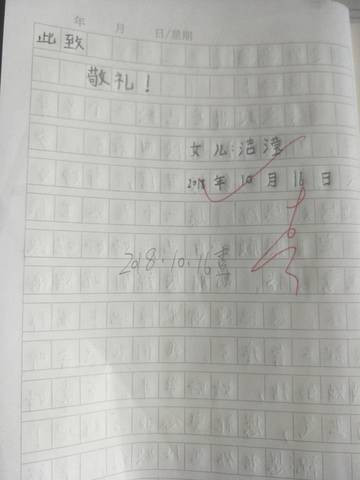 年 月 日/星期
此致
敬礼!
女儿:洁滢
2018年10月16日
2018.10.16